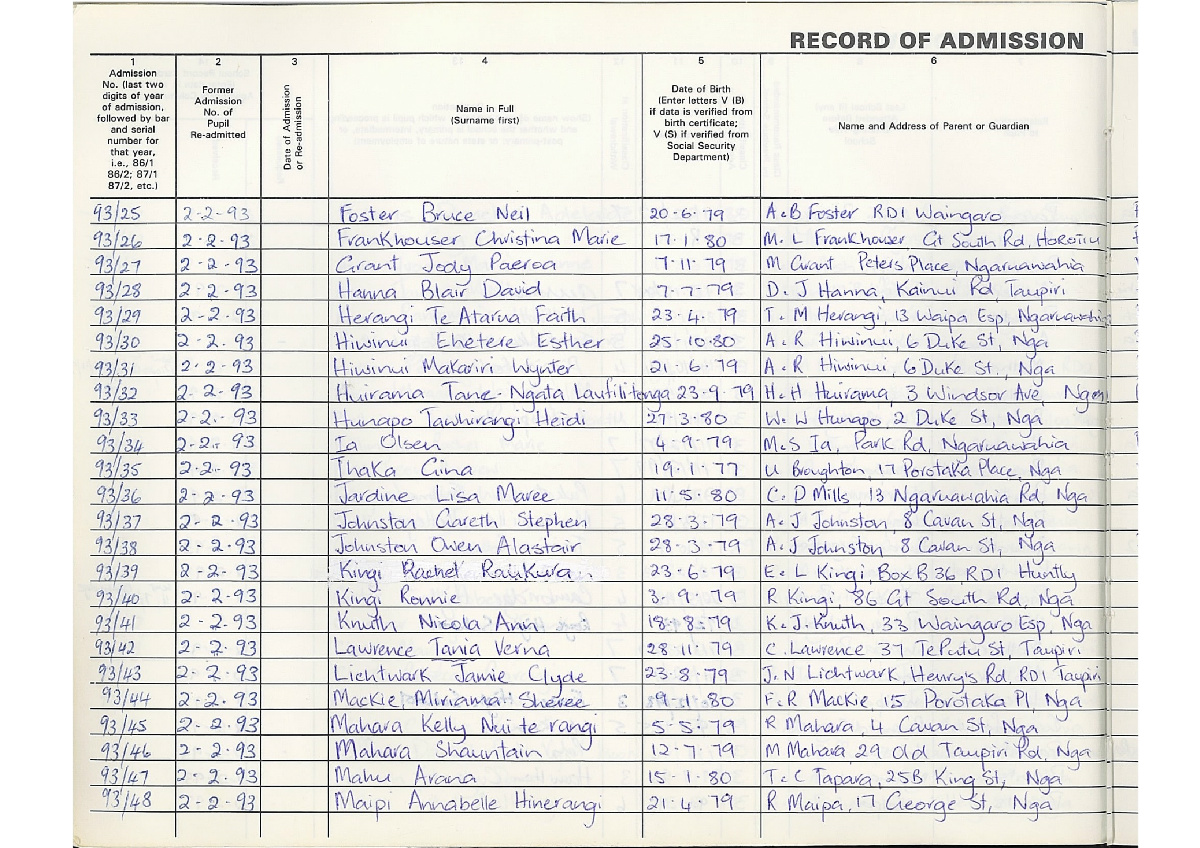 RECORD OF ADMISSION
1 2 3 4 5 6
Admission No. (last two digits of year of admission, followed by bar and serial number for that year, i.e., 86/1 86/2; 87/1 87/2, etc.)
Former Admission No. of Pupil Re-admitted
Date of Admission or Re-admission
Name in Full (Surname first)
Date of Birth (Enter letters V (B) if data is verified from birth certificate; V (S) if verified from Social Security Department)
Name and Address of Parent or Guardian
93/25 2-2-93 Foster Bruce Neil 20-6-79 A&B Foster RD1 Waingaro
93/26 2-2-93 Frankhouser Christina Marie 17-1-80 M. L Frankhouser Gt South Rd, Horotiu
93/27 2-2-93 Grant Jody Paeroa 7-11-79 M Grant Peters Place, Ngaruawahia
93/28 2-2-93 Hanna Blair David 7-7-79 D. J Hanna, Kainui Rd, Taupiri
93/29 2-2-93 Herangi Te Atarua Faith 23-4-79 T. M Herangi, 13 Waipa Esp, Ngaruawahia
93/30 2-2-93 Hiwinui Ehetere Esther 25-10-80 A&R Hiwinui, 6 Duke St, Nga
93/31 2-2-93 Hiwinui Makariri Wynter 21-6-79 A&R Hiwinui, 6 Duke St., Nga
93/32 2-2-93 Huirama Tane-Ngata Laufilitonga 23-9-79 H&H Huirama, 3 Windsor Ave, Nga
93/33 2-2-93 Hunapo Tawhirangi Heidi 27-3-80 W. W Hunapo, 2 Duke St, Nga
93/34 2-2-93 Ia Olsen 4-9-79 M&S Ia, Park Rd, Ngaruawahia
93/35 2-2-93 Ihaka Gina 19-1-77 U Broughton, 17 Porotaka Place, Nga
93/36 2-2-93 Jardine Lisa Maree 11-5-80 C. P Mills, 13 Ngaruawahia Rd, Nga
93/37 2-2-93 Johnston Gareth Stephen 28-3-79 A&J Johnston, 8 Cavan St, Nga
93/38 2-2-93 Johnston Owen Alastair 28-3-79 A&J Johnston 8 Cavan St, Nga
93/39 2-2-93 Kingi Rachel Raukura 23-6-79 E&L Kingi, Box B36, RD1 Huntly
93/40 2-2-93 Kingi Ronnie 3-9-79 R Kingi, 86 Gt South Rd, Nga
93/41 2-2-93 Knuth Nicola Ann 18-8-79 K&J. Knuth, 33 Waingaro Esp, Nga
93/42 2-2-93 Lawrence Tania Verna 28-11-79 C. Lawrence, 37 Te Putu St, Taupiri
93/43 2-2-93 Lichtwark Jamie Clyde 23-8-79 J. N Lichtwark, Henry's Rd, RD1 Taupiri
93/44 2-2-93 Mackie Miriama Sheree 19-1-80 F&R Mackie, 15 Porotaka Pl, Nga
93/45 2-2-93 Mahara Kelly Nui te rangi 5-5-79 R Mahara, 4 Cavan St, Nga
93/46 2-2-93 Mahara Shauntain 12-7-79 M Mahara 29 Old Taupiri Rd, Nga
93/47 2-2-93 Mahu Arana 15-1-80 T&C Tapara, 25B King St, Nga
93/48 2-2-93 Maipi Annabelle Hinerangi 21-4-79 R Maipa, 17 George St, Nga